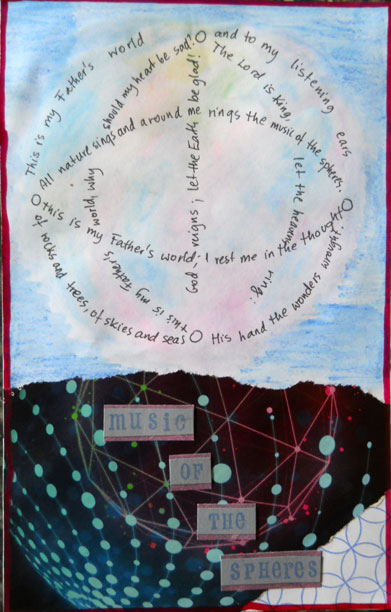 This is my Father's world
O and to my listening ears
All nature sings and around me rings the music of the spheres.
O this is my Father's world; I rest me in the thought
O
of rocks and trees, of skies and seas
O His hand the wonders wrought.
this is my Father's world, why should my heart be sad?
The Lord is King; let the heavens ring;
God reigns; let the Earth be glad!
MUSIC
OF
THE
SPHERES